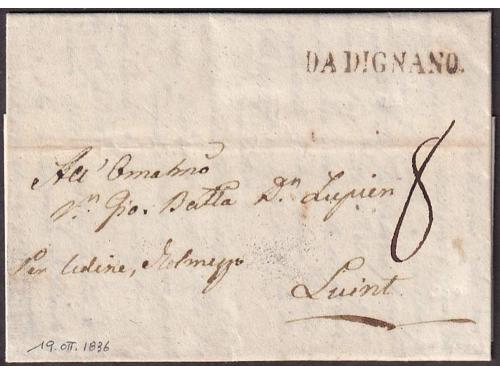 DA DIGNANO.
All' Ornatmo
Sn Gio. Batta Dn Lupieri
8
Per Udine, Tolmezzo
Luint
19. OTT. 1836